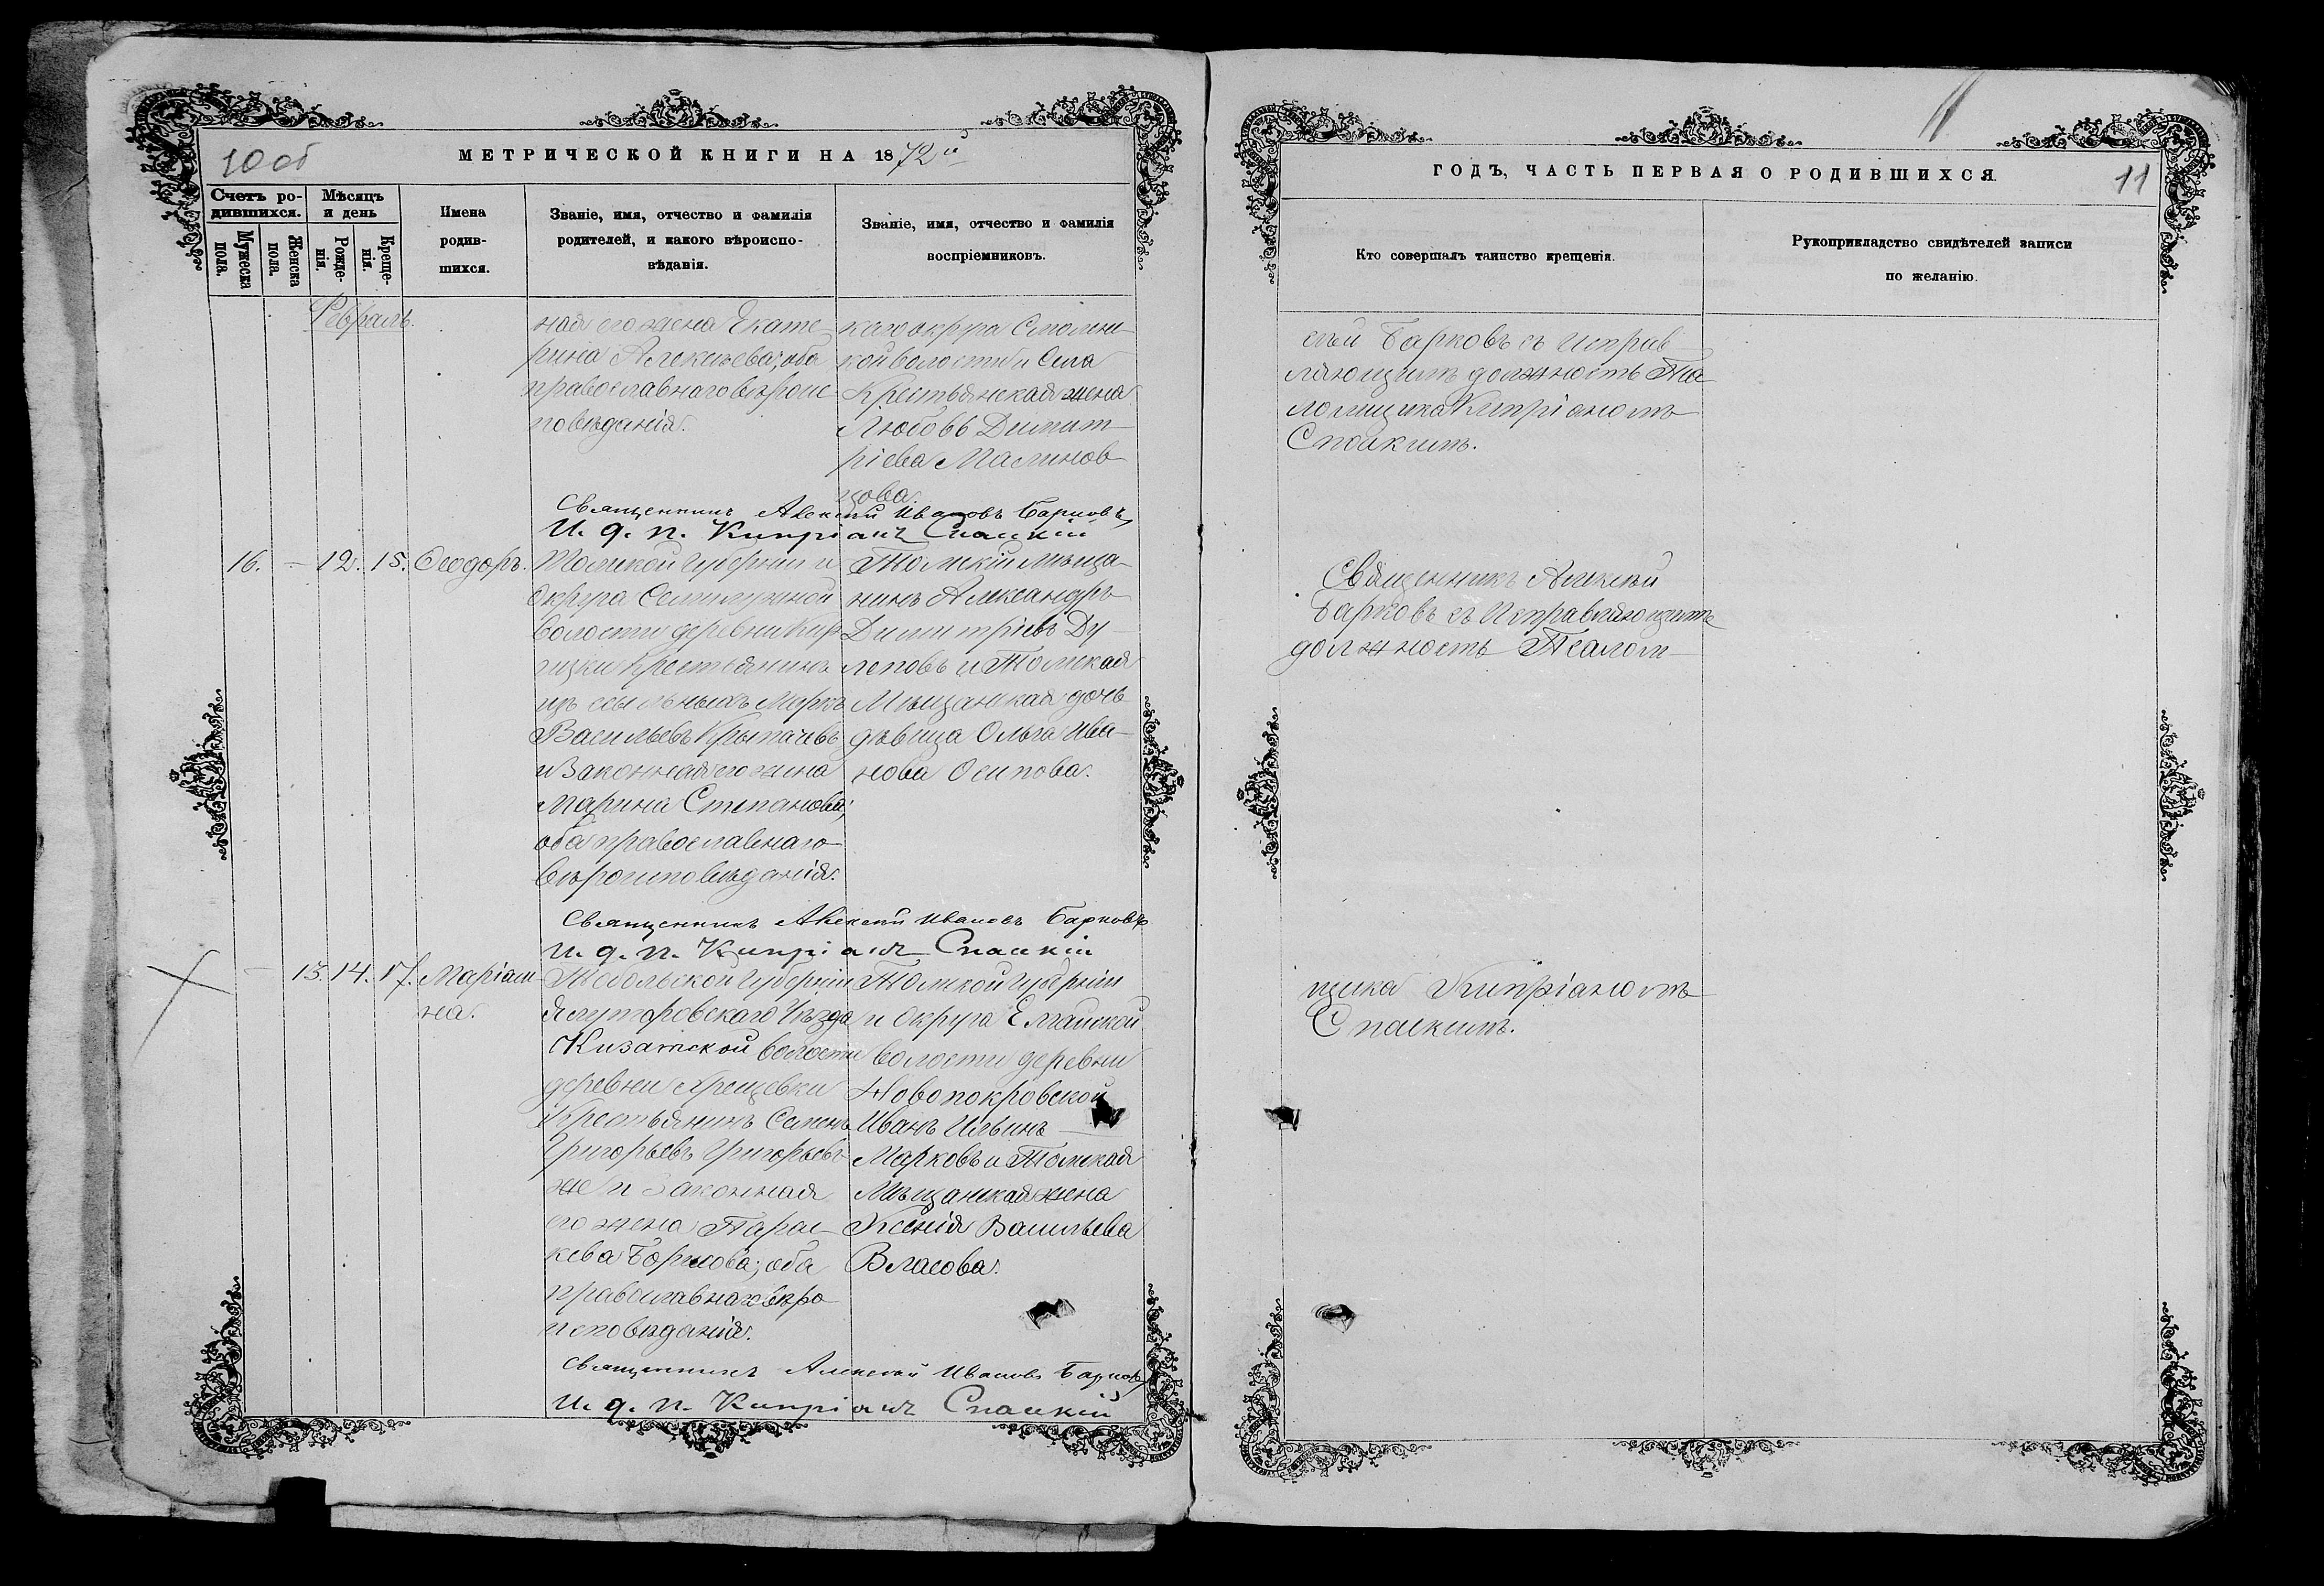 10 об
МЕТРИЧЕСКОЙ КНИГИ НА 1872й
Счетъ ро-
дившихся.
Мужеска пола.
Женска пола.
Мѣсяцъ
и день
Рожде-
нія.
Креще-
нія.
Имена
родив-
шихся.
Званіе, имя, отчество и фамилія
родителей, и какого вѣроиспо-
вѣданія.
Званіе, имя, отчество и фамилія
воспріемниковъ.
Февраль.
ная его жена Екате-
рина Алексѣева; оба
православнаго вѣроис-
повѣданія.
каго округа Смолин-
ской волости и Села
Крестьянская жена
Любовь Димит-
ріева Малинов-
цова.
Священникъ Алексій Ивановъ Барковъ
И. д. п. Кипріанъ Спасскій
16. – 12. 15. Ѳеодоръ.
Томской Губерніи и
Округа Семилужной
волости деревни
Крестьянинъ
изъ ссыльныхъ Маркъ
Васильевъ
и Законная его жена
Марина Степанова;
оба православнаго
вѣроисповѣданія.
Томскій мѣща-
нинъ Александръ
Димитріевъ Ду-
леповъ и Томская
Мѣщанская дочь
дѣвица Ольга Ива-
нова Осипова.
Священникъ Алексій Ивановъ Барковъ
И. д. п. Кипріанъ Спасскій
– 13. 14. 17. Маріам-
на.
Тобольской Губерніи
Ялуторовскаго Уѣзда
Кизатской волости
деревни
Крестьянинъ Семенъ
Григорьевъ Григорьевъ
же и Законная
его жена Парас-
кева Борисова; оба
православнаго вѣро
исповѣданія.
Томской Губерніи
и Округа Елгайской
волости деревни
Новопокровской
Иванъ Ильинъ
Марковъ и Томская
Мѣщанская жена
Ксенія Васильева
Власова.
Священникъ Алексій Ивановъ Барковъ
И. д. п. Кипріанъ Спасскій
11
ГОДЪ, ЧАСТЬ ПЕРВАЯ О РОДИВШИХСЯ.
11
Кто совершалъ таинство крещенія.
Рукоприкладство свидѣтелей записи
по желанію.
сѣй Барковъ съ Исправ-
ляющимъ должность Пса-
ломщика Кипріаномъ
Спасскимъ.
Священникъ Алексѣй
Барковъ съ Исправляющимъ
должность Псалом-
щика Кипріаномъ
Спасскимъ.